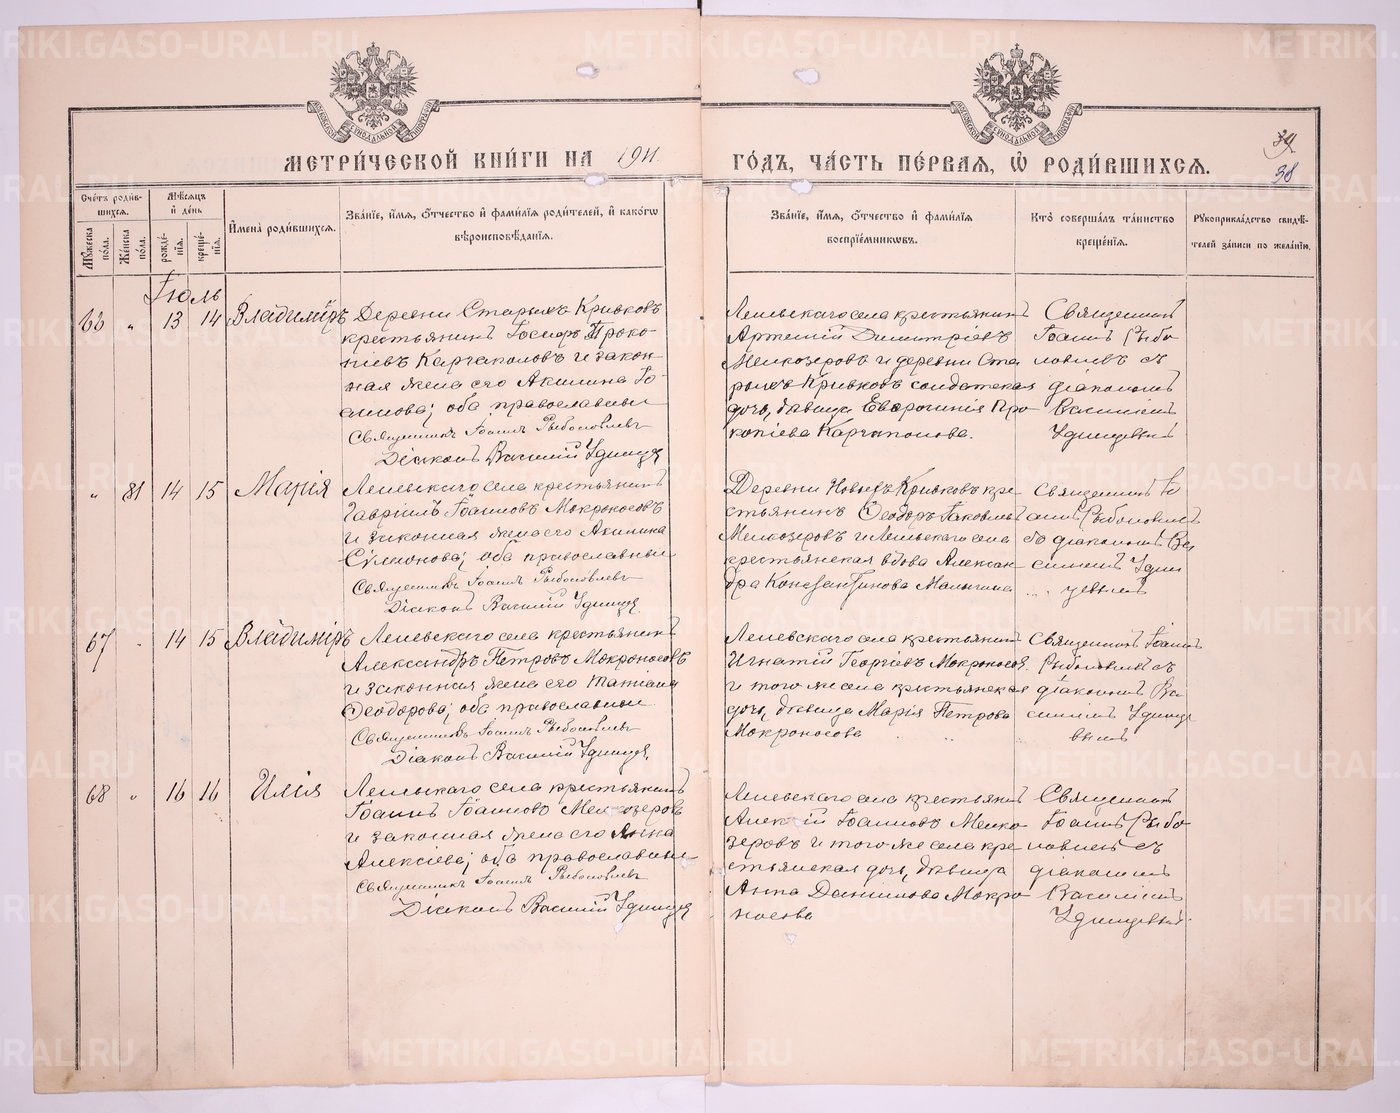 МЕТРИ́ЧЕСКОЙ КНИ́ГИ НА 1911
ГО́ДЪ, ЧА́СТЬ ПЕ́РВАЯ, Ѽ РОДИ́ВШИХСЯ.
39
38
Сче́тъ роди́в-
шихся.
Му́жеска по́ла.
Же́нска по́ла.
Мѣ́сяцъ и҆ де́нь
рожде́-
нія.
креще́-
нія.
И҆мена̀ роди́вшихся.
Зва́ніе, и҆́мя, ѻ҆́тчество и҆ фами́лія роди́телей, и҆ како́гѡ
вѣроисповѣ́данія.
Зва́ніе, и҆́мя, ѻ҆́тчество и҆ фами́лія
воспріе́мникѡвъ.
Кто̀ соверша́лъ та́инство
креще́нія.
Рꙋкоприкла́дство свидѣ́-
телей за́писи по жела́нію.
Іюль
66 „ 13 14 Владиміръ
Деревни Старыхъ Кривковъ
крестьянинъ Іосифъ Проко-
піевъ Карчаполовъ и закон-
ная жена его Акилина Іо-
аннова; оба православные
Священникъ Іоаннъ Рыболовлевъ
Діаконъ Василій Удинцев
Лепевскаго села крестьянинъ
Артемій Димитріевъ
Мелкозеровъ и деревни Ста
рыхъ Кривковъ солдатская
дочь, дѣвица Евфросинія Про
копіева Карчаполова.
Священникъ
Іоаннъ Рыбо
ловлевъ съ
діакономъ
Василіемъ
Удинцевымъ
„ 81 14 15 Марія
Лепевскаго села крестьянинъ
Гавріилъ Іоанновъ Мокроносовъ
и законная жена его Акилина
Сѵмеонова; оба православные
Священникъ Іоаннъ Рыболовлевъ
Діаконъ Василій Удинцев
Деревни Новыхъ Кривковъ кре-
стьянинъ Ѳеодоръ Іаковлевъ
Мелкозеровъ и Лепевскаго села
крестьянская вдова Алексан-
дра Константинова
Священникъ Іо
аннъ Рыболовлевъ
со діакономъ Ва
силіемъ Удин
цевымъ
67 „ 14 15 Владиміръ
Лепевскаго села крестьянинъ
Александръ Петровъ Мокроносовъ
и законная жена его Татіана
Ѳеодорова; оба православные
Священникъ Іоаннъ Рыболовлевъ
Діаконъ Василій Удинцев
Лепевскаго села крестьянинъ
Игнатій Георгіевъ Мокроносов
и того же села крестьянская
дочь, дѣвица Марія Петрова
Мокроносова
Священникъ Іоаннъ
Рыболовлевъ съ
діакономъ Ва
силіемъ Удинце
вымъ
68 „ 16 16 Илія
Лепевскаго села крестьянинъ
Іоаннъ Іоанновъ Мелкозеровъ
и законная жена его Анна
Алексіева; оба православные
Священникъ Іоаннъ Рыболовлевъ
Діаконъ Василій Удинцев
Лепевскаго села крестьянинъ
Алексій Іоанновъ Мелко-
зеровъ и того же села кре-
стьянская дочь, дѣвица
Анна Даниилова Мокро-
носова
Священникъ
Іоаннъ Рыбо
ловлевъ съ
діакономъ
Василіемъ
Удинцевымъ
METRIKI.GASO-URAL.RU